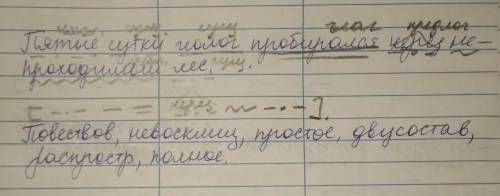 числ. сущ. сущ. глаг предлог
Пятые сутки геолог пробирался через не-
проходимый лес. сущ.
[- · - · - = ~ - · -].
Повествов, невосклиц, простое, двусостав,
распростр, полное.